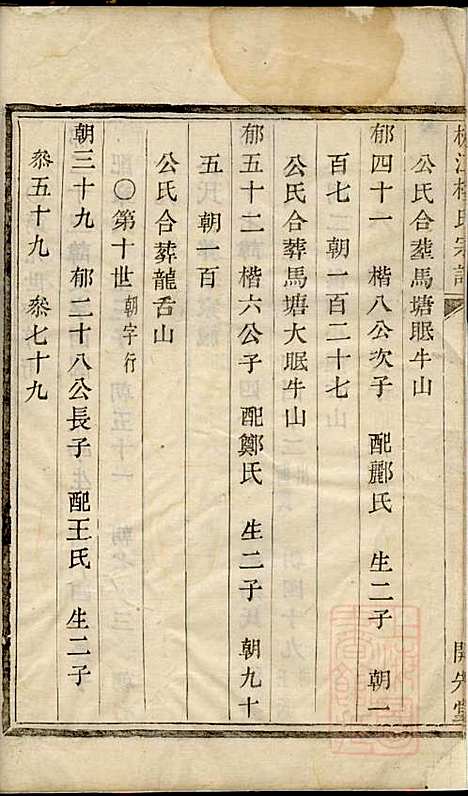 公氏合葬馬塘眠牛山
郁四十一　楷八公次子　配酈氏　生二子　朝一
百七　朝一百二十七
公氏合葬馬塘大眠牛山
郁五十二　楷六公子　配鄭氏　生二子　朝九十
五　朝一百
公氏合葬龍舌山
〇第十世朝字行
朝三十九　郁二十八公長子　配王氏　生二子
叅五十九　叅七十九
開先堂